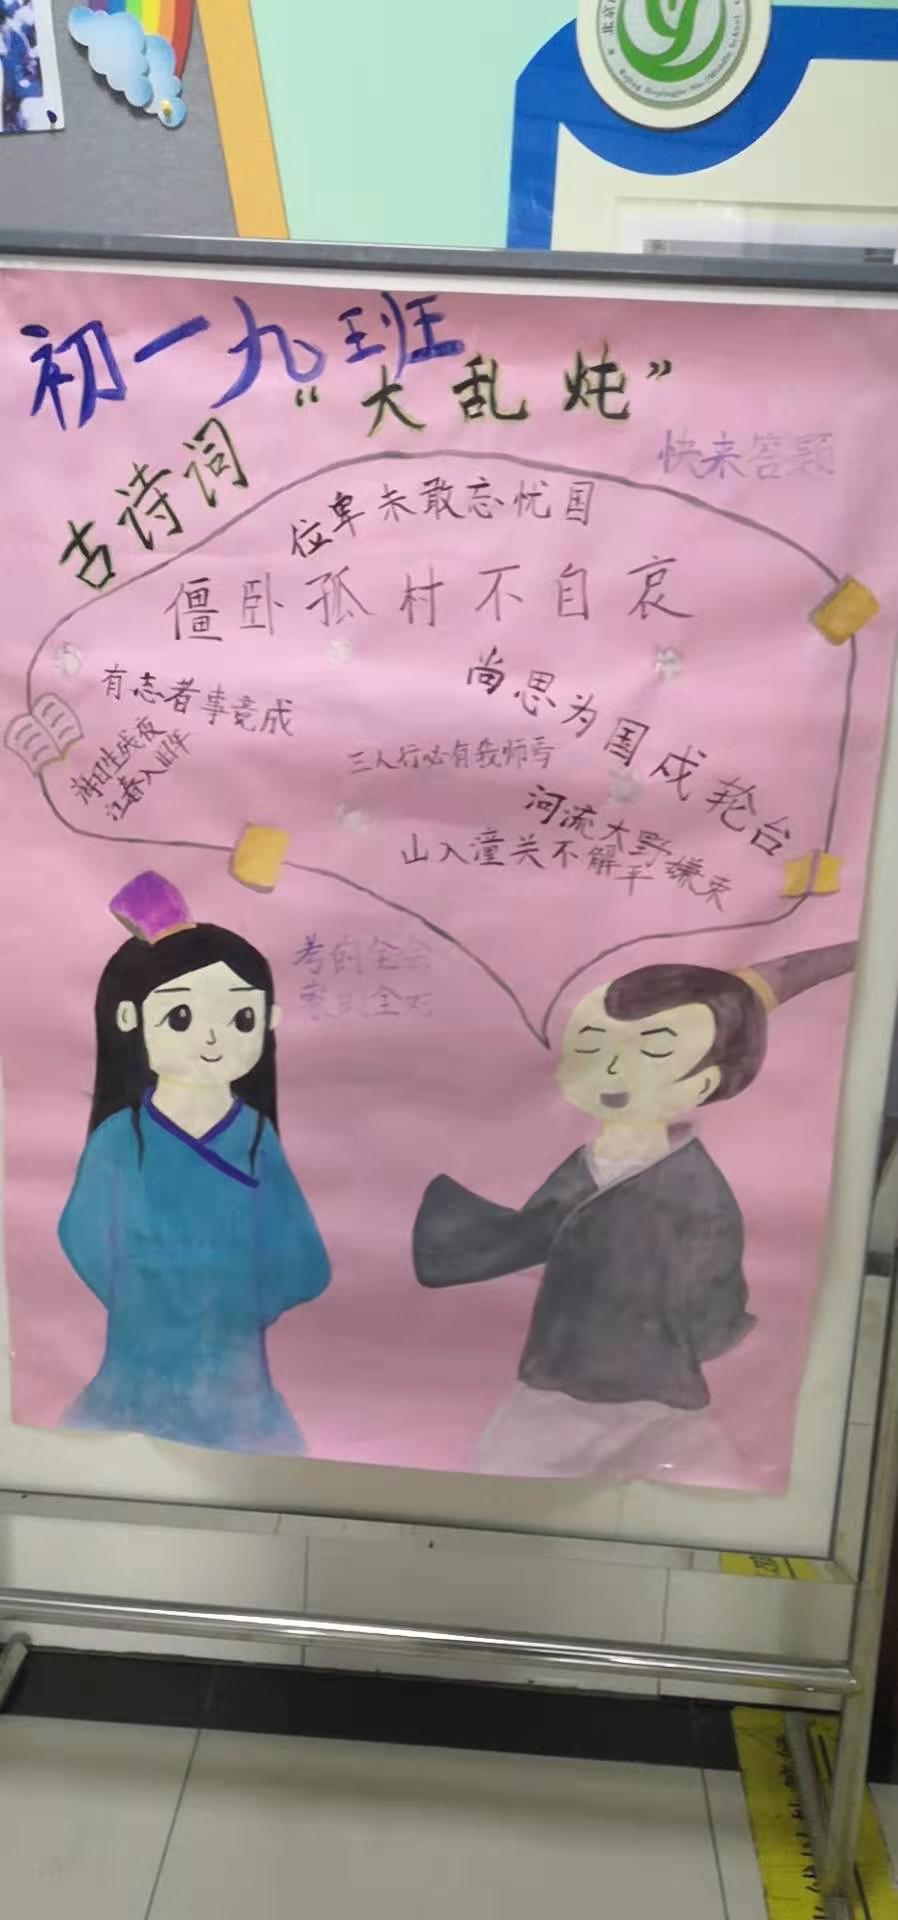 初一九班
古诗词“大乱炖”
快来答题
位卑未敢忘忧国
僵卧孤村不自哀
有志者事竟成
尚思为国戍轮台
海日生残夜
江春入旧年
三人行必有我师焉
河流大野嫌束
山入潼关不解平
考的全会
蒙的全对